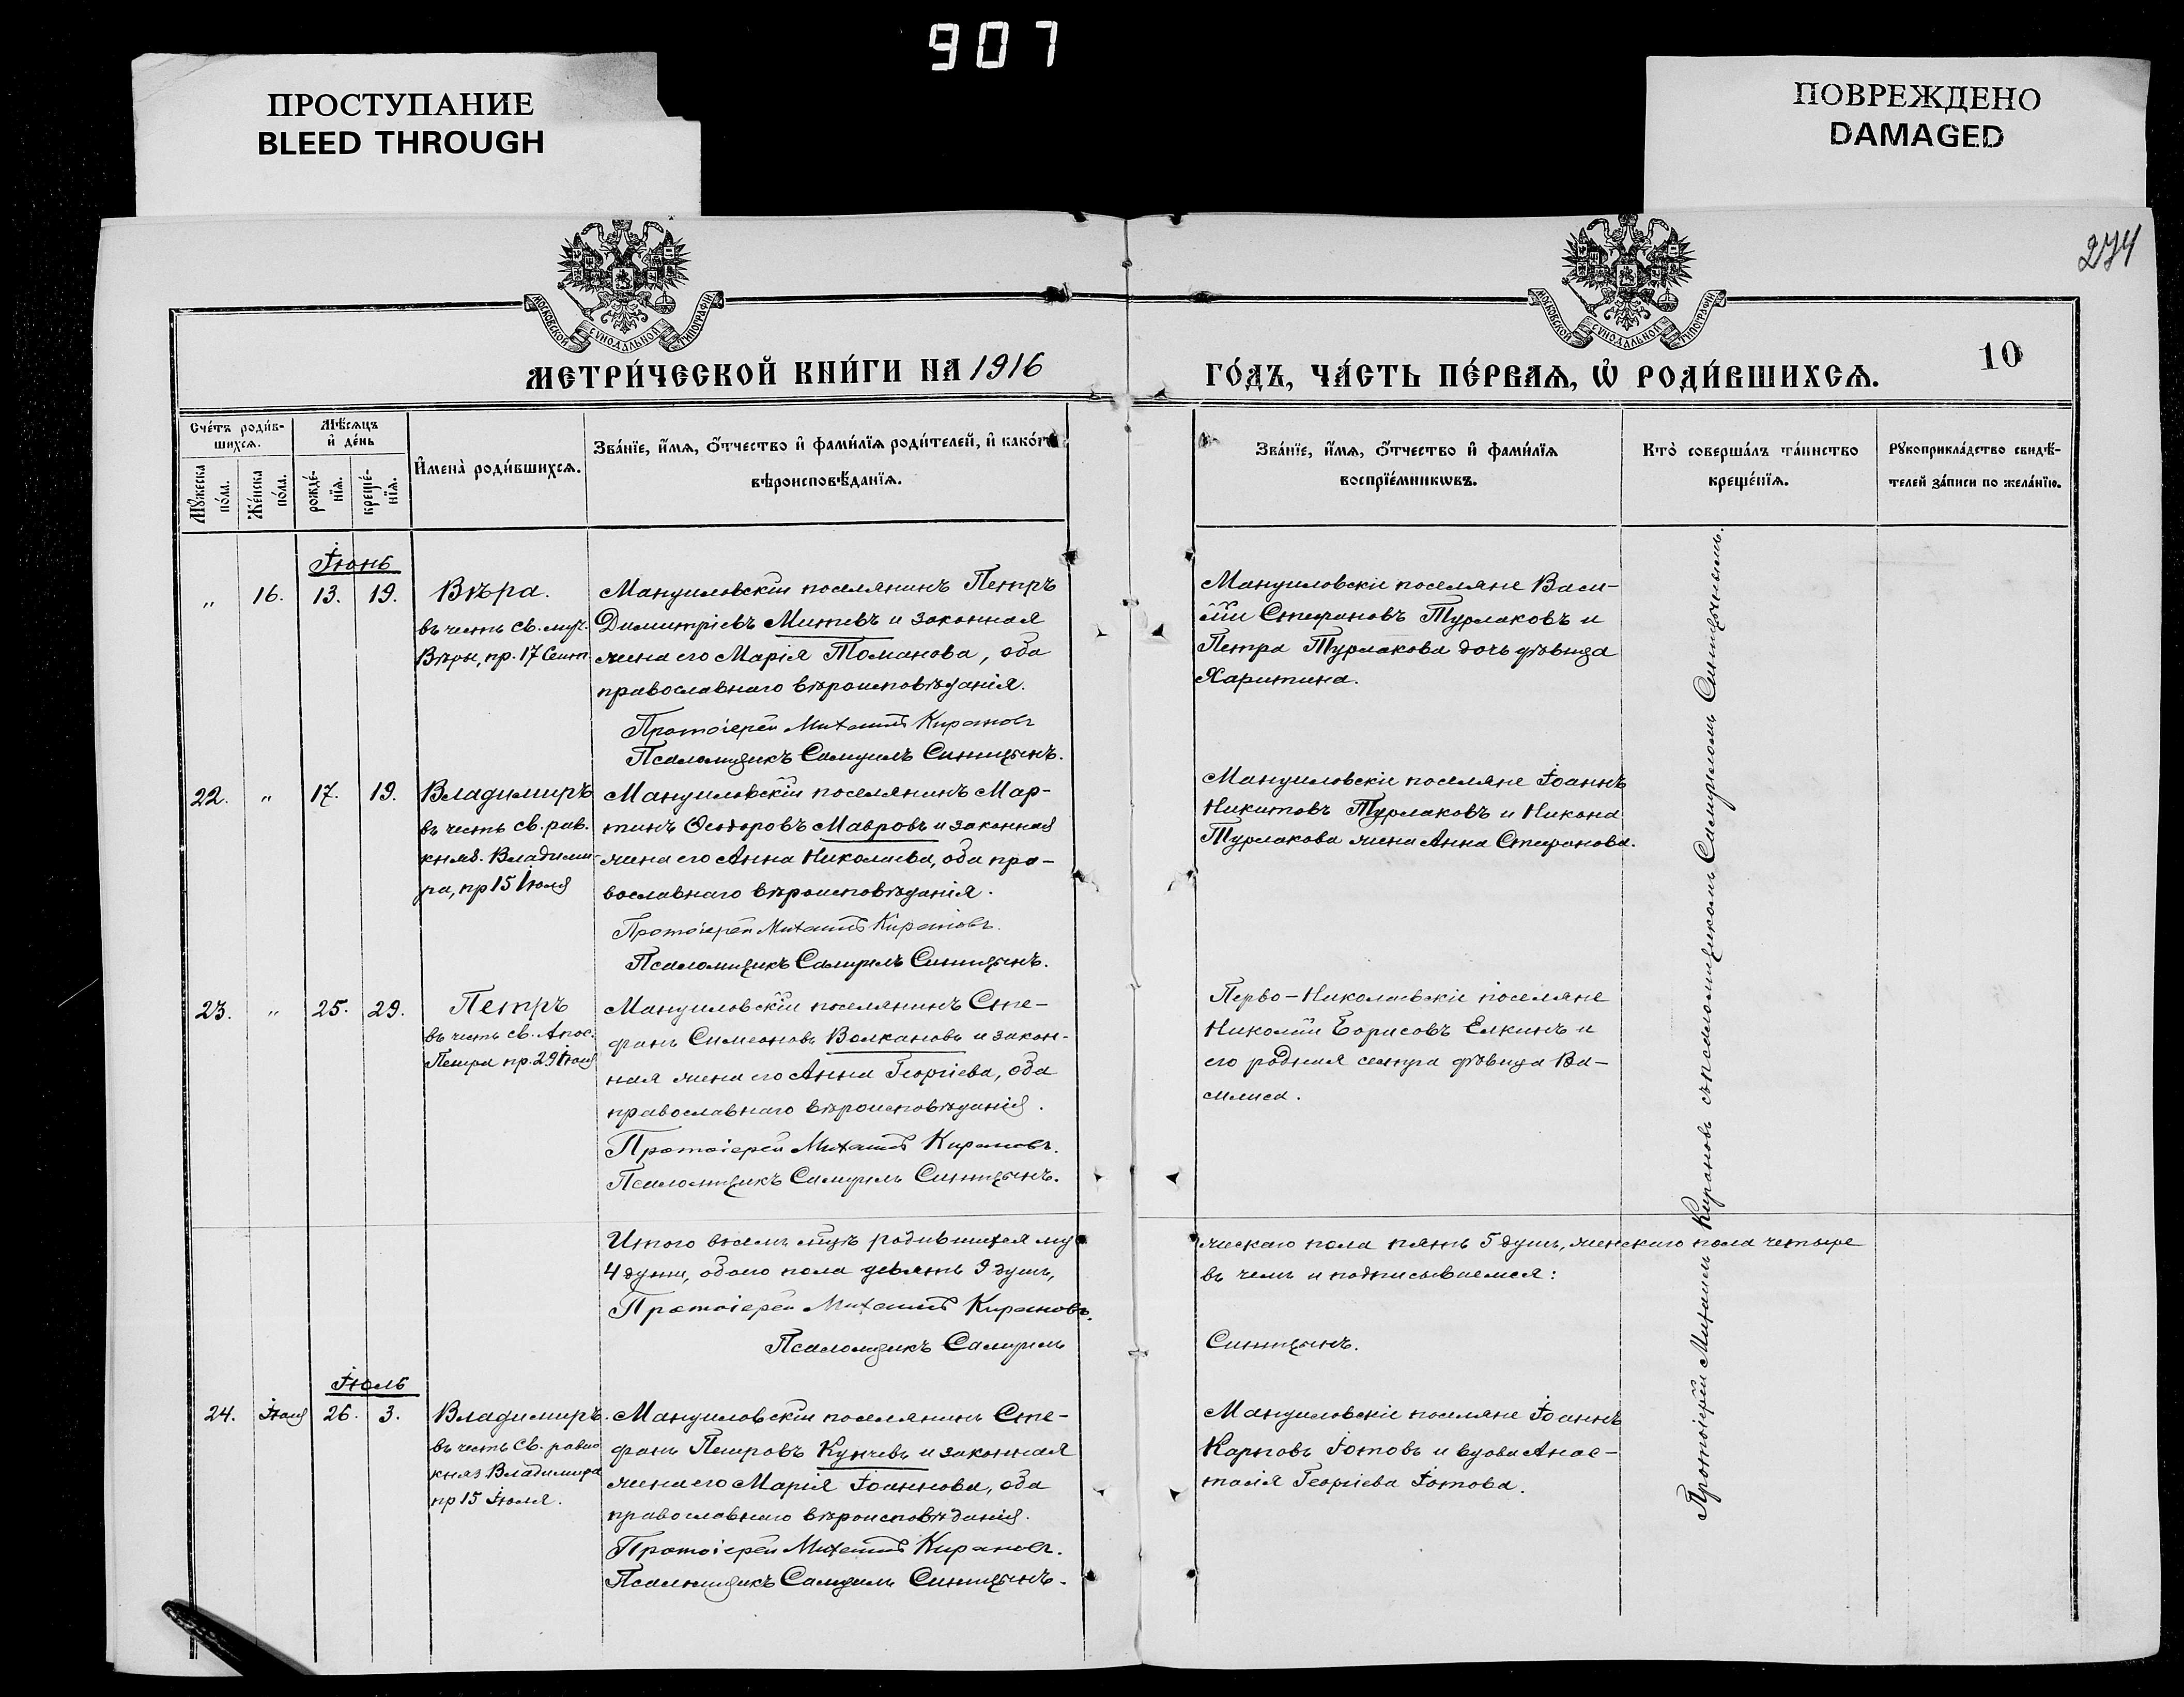 907
ПРОСТУПАНИЕ
BLEED THROUGH
ПОВРЕЖДЕНО
DAMAGED
274
МОСКОВСКОЙ СѴНОДАЛЬНОЙ ТИПОГРАФІИ
МОСКОВСКОЙ СѴНОДАЛЬНОЙ ТИПОГРАФІИ
10
МЕТРИ́ЧЕСКОЙ КНИ́ГИ НА 1916
ГО́ДЪ, ЧА́СТЬ ПЕ́РВАѦ, Ѡ҆ РОДИ́ВШИХСѦ.
Сче́тъ роди́в-
шихсѧ.
Мѣ́сѧцъ
и҆ де́нь
Мꙋ́жеска
по́ла.
Же́нска
по́ла.
рожде́-
нїѧ.
креще́-
нїѧ.
И҆мена̀ роди́вшихсѧ.
Зва́нїе, и҆́мѧ, ѻ҆́тчество и҆ фами́лїѧ роди́телей, и҆ како́гѡ
вѣроисповѣ́данїѧ.
Зва́нїе, и҆́мѧ, ѻ҆́тчество и҆ фами́лїѧ
воспрїе́мникѡвъ.
Кто̀ соверша́лъ та́инство
креще́нїѧ.
Рꙋкоприкла́дство свидѣ́-
телей за́писи по жела́нїю.
Іюнь
„ 16. 13. 19.
Вѣра.
въ честь св. муч.
Вѣры, пр. 17 Сент.
Мануиловскій поселянинъ Петръ
Димитріевъ Митевъ и законная
жена его Марія Томанова, оба
православнаго вѣроисповѣданія.
Протоіерей Михаилъ Кирановъ
Псаломщикъ Самуилъ Синицынъ.
Мануиловскіе поселяне Васи-
лій Стефановъ Турлаковъ и
Петра Турлакова дочь дѣвица
Харитина.
22. „ 17. 19.
Владимиръ
въ честь св. рав.
княз. Владими-
ра, пр 15 Іюля
Мануиловскій поселянинъ Мар-
тинъ Ѳеодоровъ Мавровъ и законная
жена его Анна Николаева, оба пра-
вославнаго вѣроисповѣданія.
Протоіерей Михаилъ Кирановъ.
Псаломщикъ Самуилъ Синицынъ.
Мануиловскіе поселяне Іоаннъ
Никитовъ Турлаковъ и Никона
Турлакова жена Анна Стефанова.
23. „ 25. 29.
Петръ
въ честь св. Апос.
Петра пр. 29 Іюня
Мануиловскій поселянинъ Сте-
фанъ Симеоновъ Волкановъ и закон-
ная жена его Анна Георгіева, оба
православнаго вѣроисповѣданія.
Протоіерей Михаилъ Кирановъ.
Псаломщикъ Самуилъ Синицынъ.
Перво-Николаевскіе поселяне
Николай Борисовъ Елкинъ и
его родная сестра дѣвица Ва-
силиса.
Итого родившихся му
жескаго пола пять 5 душъ, женскаго пола четыре
4 души, обоего пола девять 9 душъ,
въ чемъ и подписываемся:
Протоіерей Михаилъ Кирановъ.
Псаломщикъ Самуилъ
Синицынъ.
Іюль
24. Іюня 26. 3.
Владимиръ.
въ честь св. равно
княз Владимира
пр 15 Іюля.
Мануиловскій поселянинъ Сте-
фанъ Петровъ Кунчевъ и законная
жена его Марія Іоаннова, оба
православнаго вѣроисповѣданія.
Протоіерей Михаилъ Кирановъ.
Псаломщикъ Самуилъ Синицынъ.
Мануиловскіе поселяне Іоаннъ
Карповъ Іотовъ и вдова Анас-
тасія Георгіева Іотова.
Протоіерей Михаилъ Кирановъ съ псаломщикомъ Самуиломъ Синицынымъ.